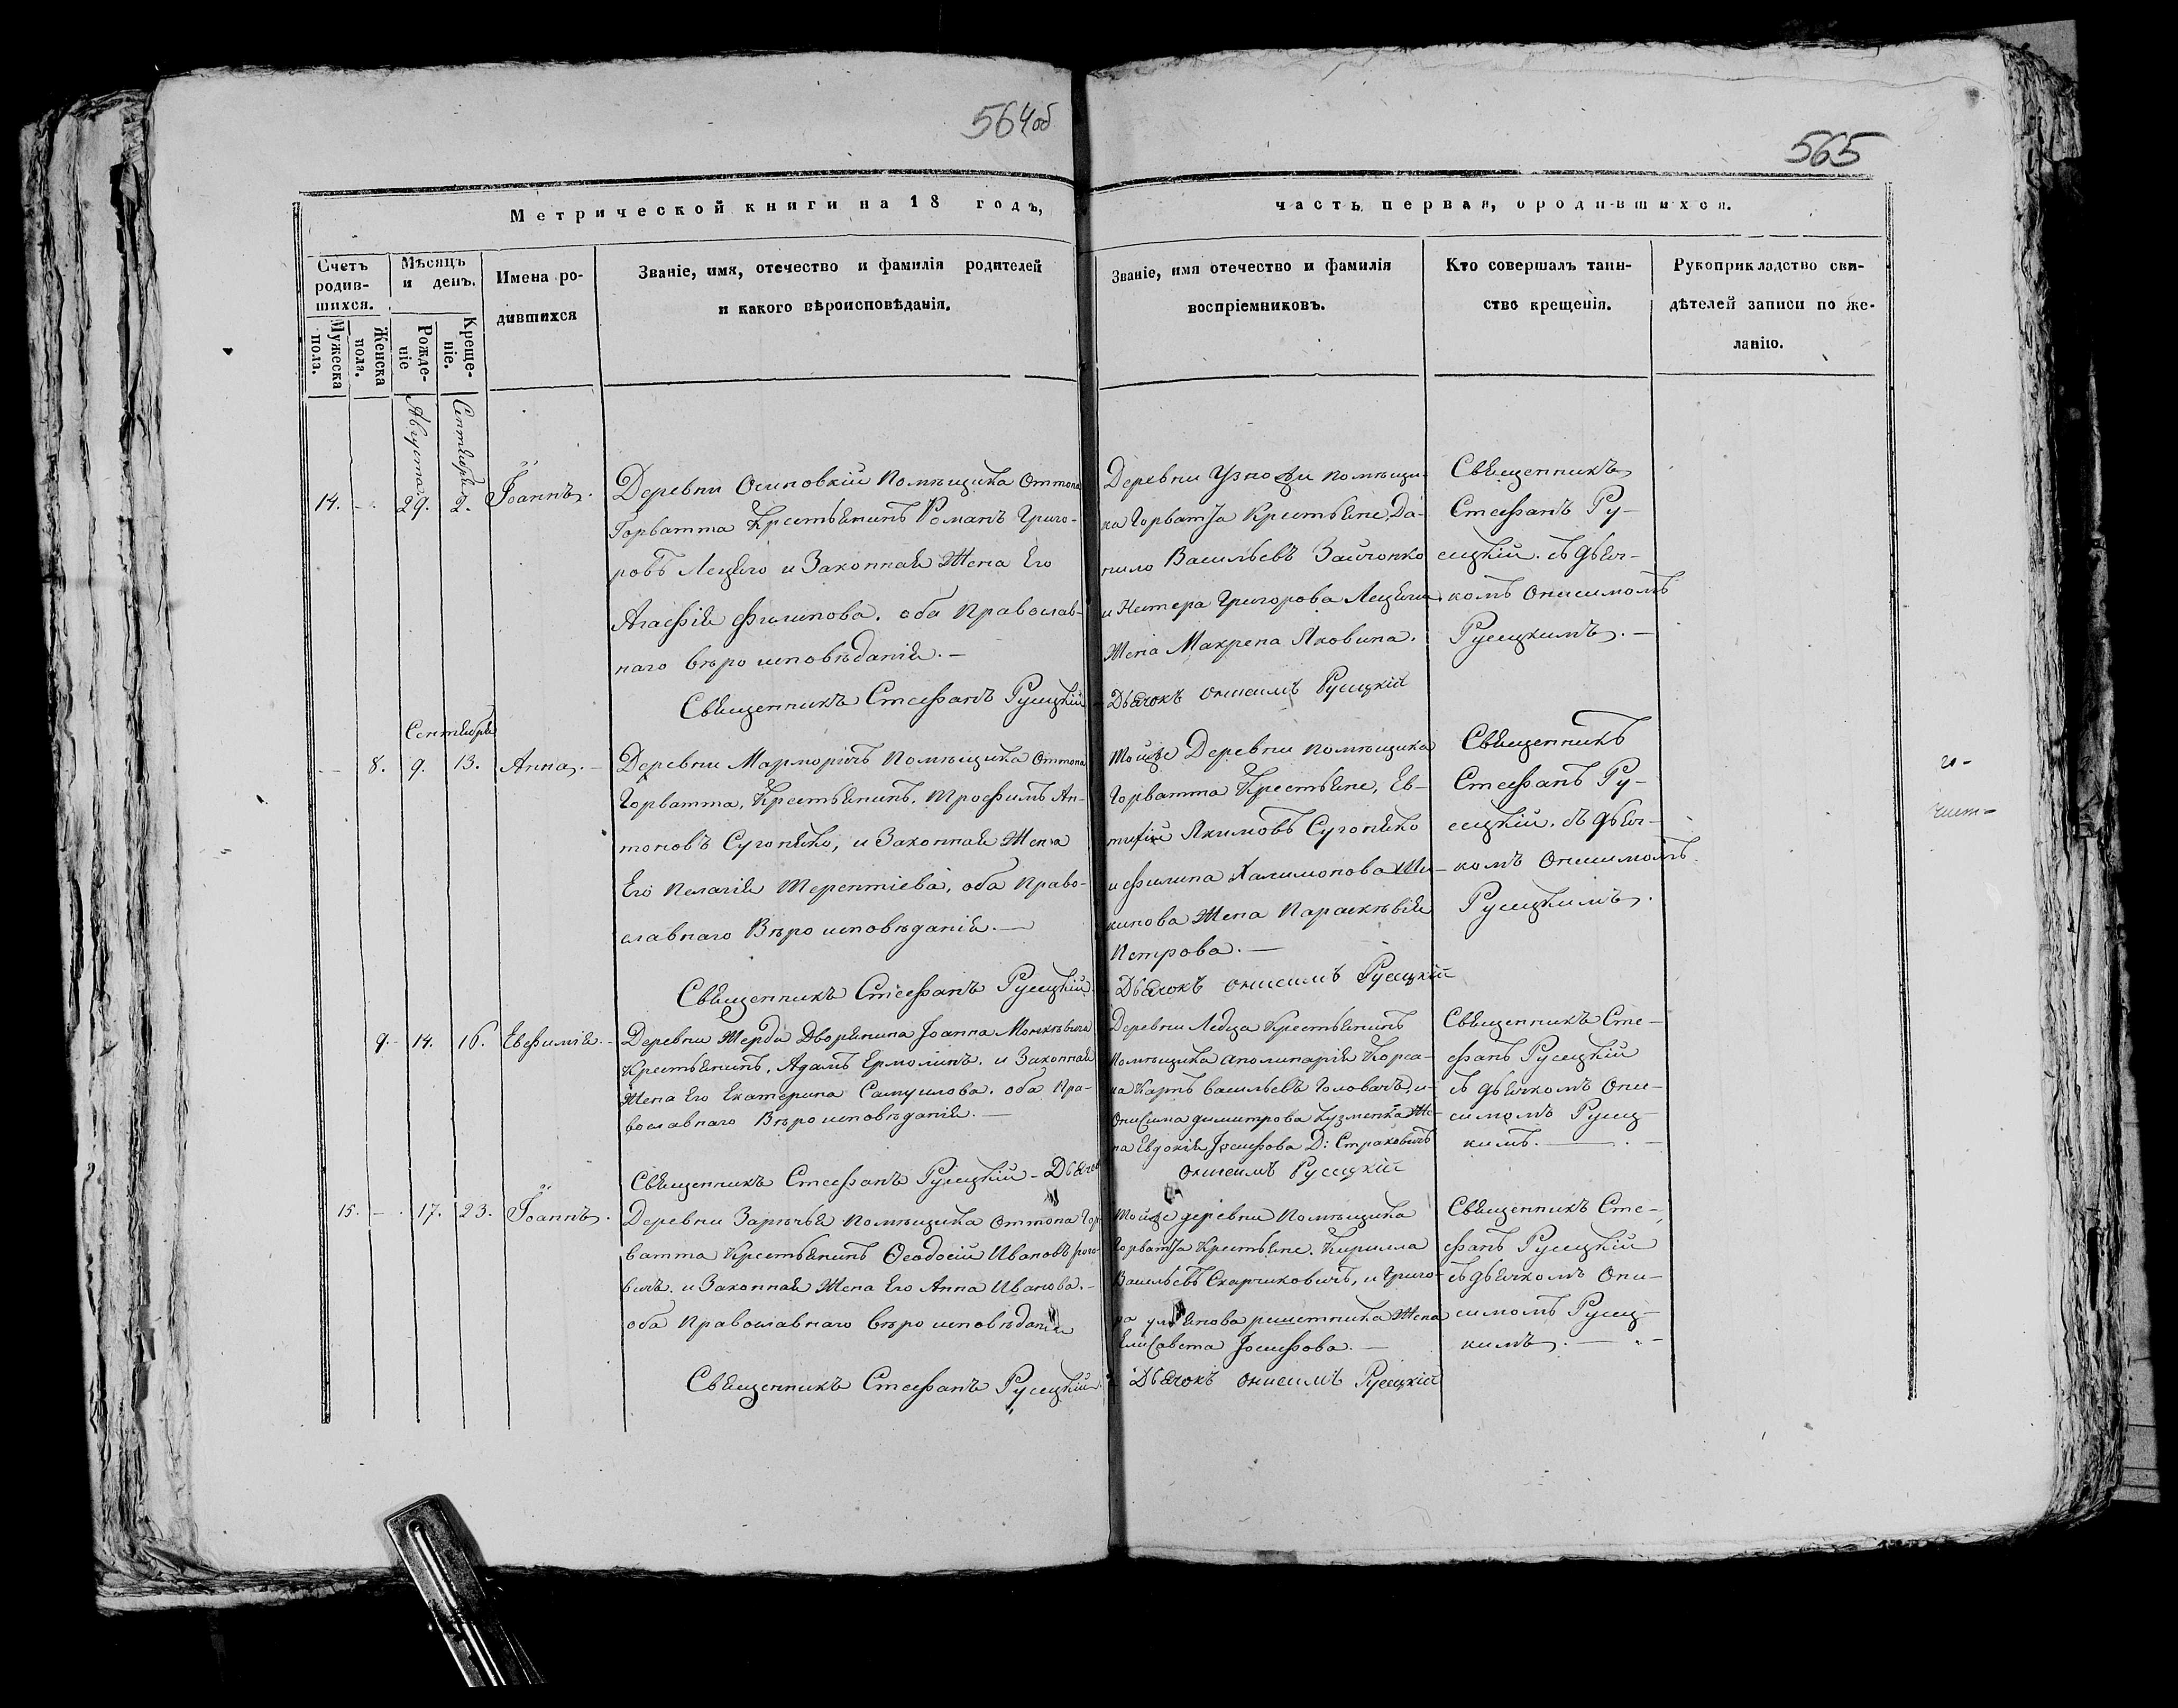 564об
565
Метрической книги на 18 годъ,
часть первая, о родившихся.
Счетъ родив-шихся.
Мужеска пола.
Женска пола.
Мѣсяцъ и день.
Рожде-ніе
Креще-ніе.
Имена ро-
дившихся
Званіе, имя, отечество и фамилія родителей
и какого вѣроисповѣданія.
Званіе, имя отечество и фамилія
воспріемниковъ.
Кто совершалъ таин-
ство крещенія.
Рукоприкладство сви-
дѣтелей записи по же-
ланію.
Августа
Сентября
14. - 29. 2. Іоаннъ.
Деревни Осиповки помѣщика Оттона
Горватта Крестьянинъ Романъ Григо-
ровъ Лецко и Законная Жена Его
Агафія Филипова. оба Православ-
наго вѣроисповѣданія.
Священникъ Стефанъ Русецкій
Деревни помѣщи-
ка Горватта Крестьяне, Да-
нило Васильевъ Зайчонко
и Нестера Григорова
Жена Макрена Яковина.
Дьячокъ Онисимъ Русецкій
Священникъ
Стефанъ Ру-
сецкій. съ дьяч-
комъ Онисимомъ
Русецкимъ.
Сентября
- 8. 9. 13. Анна.
Деревни Марморичъ Помѣщика Оттона
Горватта, Крестьянинъ, Трофимъ Ан-
тоновъ Сугонько, и Законная Жена
Его Пелагія Терентіева, оба Право-
славнаго Вѣроисповѣданія.
Священникъ Стефанъ Русецкій
Тойже Деревни помѣщика
Горватта Крестьяне, Ев-
тихій Якимовъ Сугонько
и Филипа Халимонова
Жена Параскѣвія
Петрова.
Дьячокъ Онисимъ Русецкій
Священникъ
Стефанъ Ру-
сецкій. съ дьяч-
комъ Онисимомъ
Русецкимъ.
9. 14. 16. Евфимія.
Деревни Жерди Дворянина Іоанна
Крестьянинъ, Адамъ Ермолинъ. и Законная
Жена Его Екатерина Самуилова. оба Пра-
вославнаго Вѣроисповѣданія.
Священникъ Стефанъ Русецкій - Дьячокъ
Деревни Ледца Крестьянинъ
Помѣщика Аполинарія Корса-
ка Карпъ Васильевъ Головачъ, и
Онисима Димитрова Кузменка Же-
на Евдокія Іосифова Д: Страховичъ
Онисимъ Русецкій
Священникъ Сте-
фанъ Русецкій
съ дьячкомъ Они-
симомъ Русец-
кимъ.
15. - 17. 23. Іоаннъ.
Деревни Зарѣчья помѣщика Оттона Гор-
ватта Крестьянинъ Ѳеодосій Ивановъ
и Законная Жена Его Анна Иванова.
оба Православнаго вѣроисповѣданія
Священникъ Стефанъ Русецкій.
Тойже деревни Помѣщика
Горватта Крестьяне. Кирилла
Васильевъ Скарчиковичъ, и Григо-
ра Жена
Елисавета Іосифова.
Дьячокъ Онисимъ Русецкій
Священникъ Сте-
фанъ Русецкій
съ дьячкомъ Они-
симомъ Русец-
кимъ.